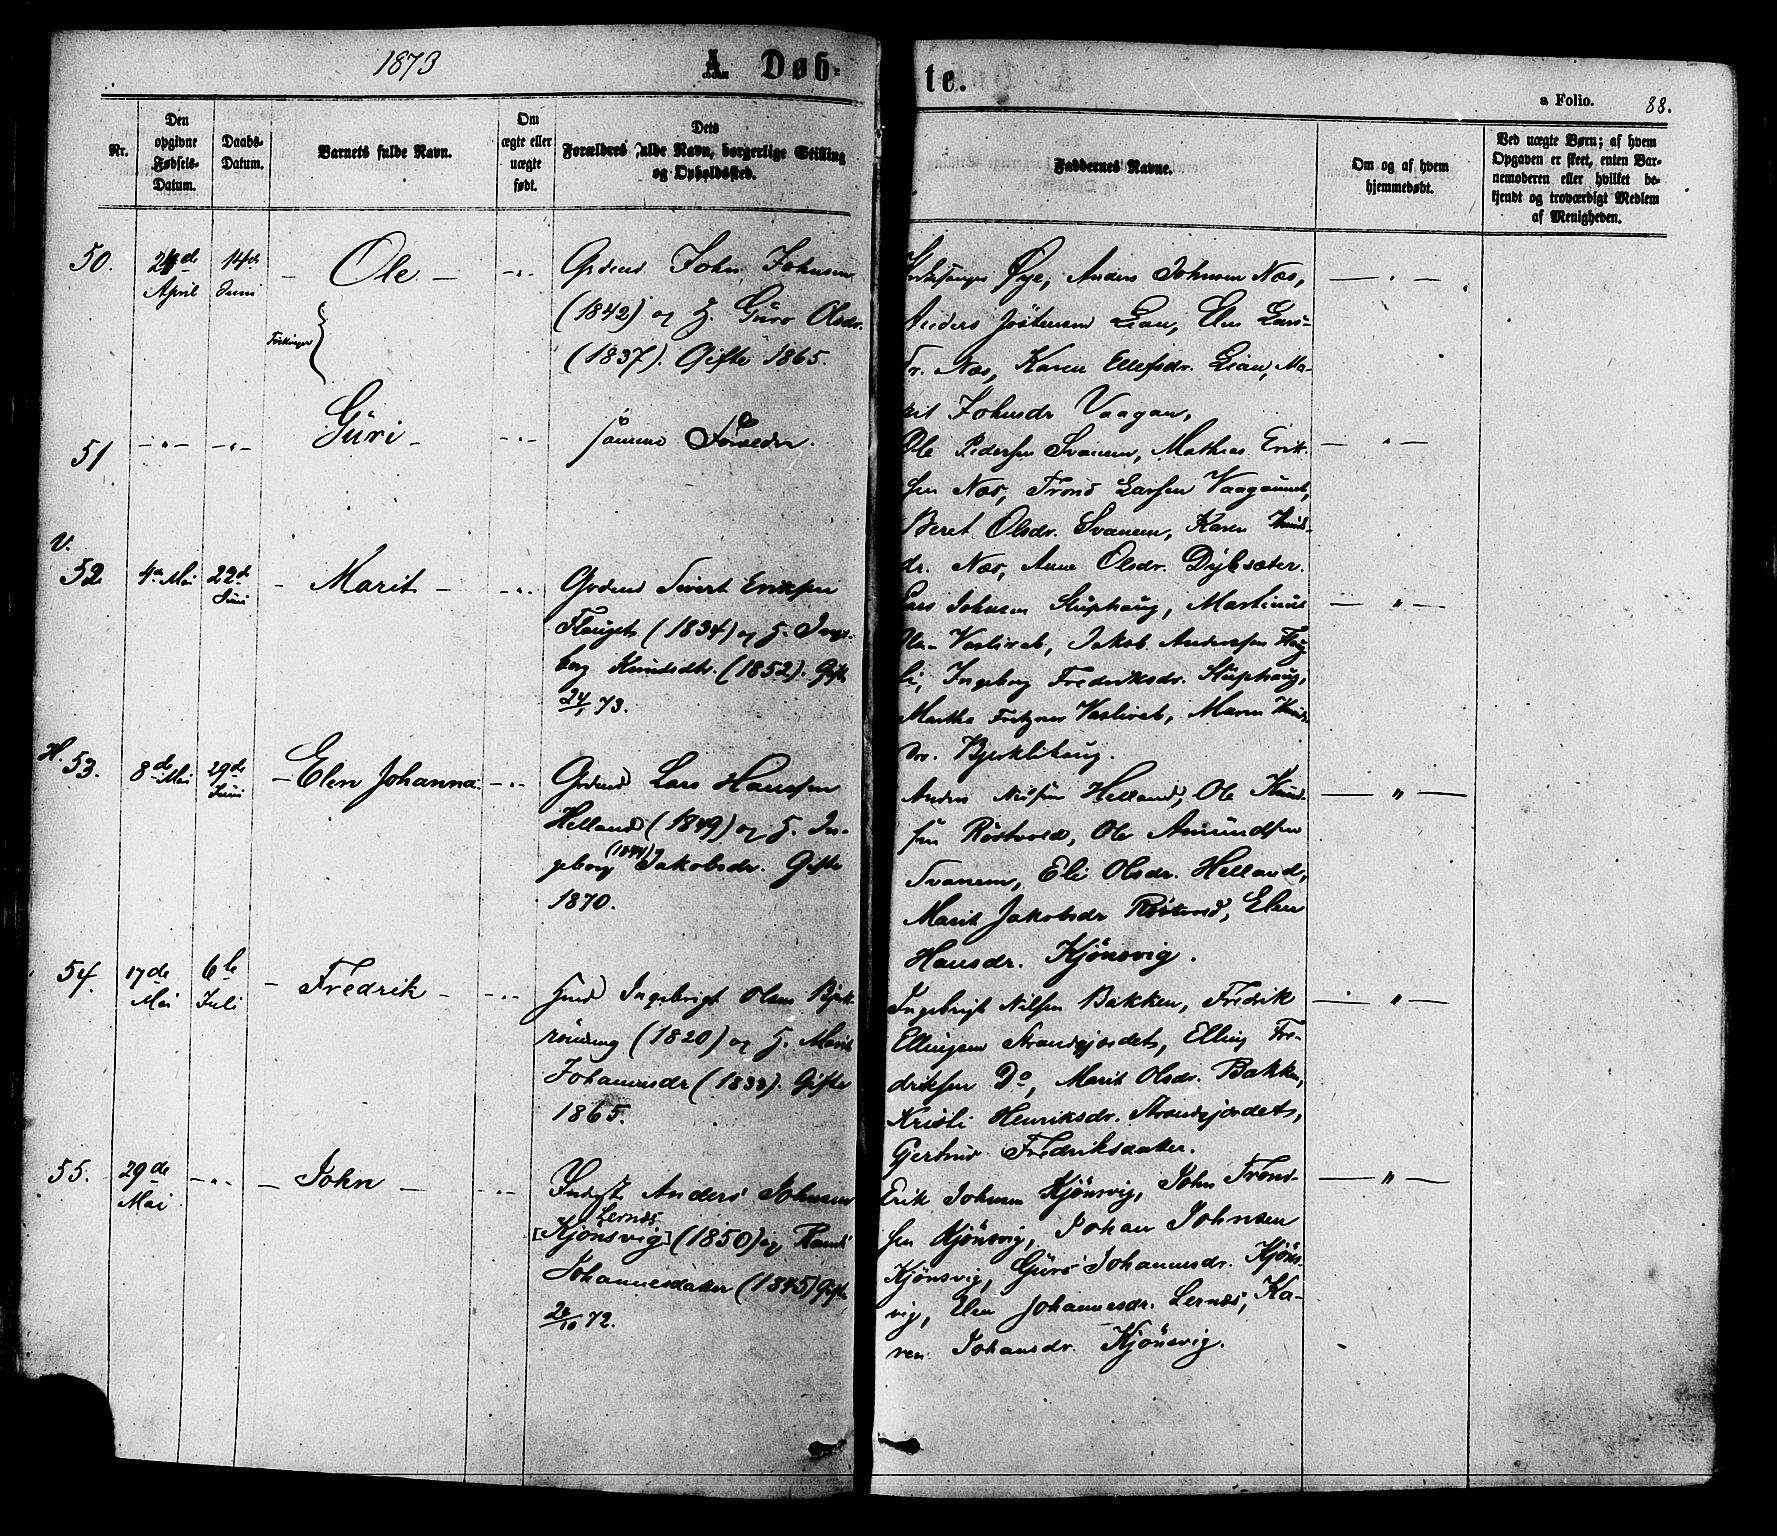 1873 A Døb-
te.
a Folio. 88.
Nr.
Den opgivne Fødsels-Datum.
Daabs-Datum.
Barnets fulde Navn.
Om ægte eller uægte født.
Dets Forældres fulde Navn, borgerlige Stilling og Opholdssted.
Faddernes Navne.
Om og af hvem hjemmedøbt.
Ved uægte Børn; af hvem Opgaven er skeet, enten Barnemoderen eller hvilket bekjendt og troværdigt Medlem af Menigheden.
50. 24de April 14de Juni – Ole – – " –
Grdmd John Johnsen
(1842) og H. Guro Olsdr.
(1837). Gifte 1865.
Kirkesanger Øye, Anders Johnsen Næs,
Anders Jostensen Lian, Elen Lars-
dr. Næs, Karen Ellefsdr. Lian, Ma-
rit Johnsdr Vaagan,
Tvillinger
51 – " – – " – Guri – – " –
samme Forældre.
Ole Pedersen Svanem, Mathias Erik-
sen Næs, Trond Larsen Vaagaunet,
Beret Olsdr. Svanem, Karen Knuds-
dr. Næs, Anne Olsdr. Dybsæter.
V. 52 4de Mai 22de Juni – Marit – – " –
Grdmd Sivert Eriksen
Hauget (1834) og H. Inge-
borg Knudsdtr. (1852). Gifte
24/1 73.
Lars Johnsen Stuphaug, Martinus
Vaslivet, Jakob Anderssen Haug-
li, Ingeborg Fredriksdr. Stuphaug,
Martha Vaslivet, Maren Knuds-
dr. Bjerklihaug.
H. 53. 8de Mai 29de Juni – Elen Johanna – " –
Grdmd Lars Hanssen
Helland (1849) og H. In-
geborg (1844) Jakobsdr. Gifte
1870.
Anders Nilsen Helland, Ole Knud-
sen Røstvold, Ole Amundsen
Svanem, Eli Olsdr. Helland,
Marit Jakobsdr Røstvold, Elen
Hansdr. Kjönsvig.
54. 17de Mai 6te Juli – Fredrik – – " –
Hmd Ingebrigt Olsen Bjerk-
(1820) og H. Marit
Johannesdr (1833). Gifte
1865.
Ingebrigt Nilsen Bakken, Fredrik
Ellingsen Strandgjærdet, Elling Fre-
driksen Do, Marit Olsdr. Bakken,
Kristi Henriksdr. Strandgjerdet,
Gjertrud Fredriksdatter.
55. 29de Mai – " – – John – – " –
Inderst Anders Johnsen
Lernæs
[Kjönsvig] (1850) og Randi
Johannesdatter (1845) Gifte
/10 72.
Erik Johnsen Kjönsvig, John Trond-
sen Kjönsvig, Johan Johnsen
Kjönsvig, Guro Johannesdr. Kjöns-
vig, Elen Johannesdr. Lernæs, Ka-
ren Johansdr. Kjönsvig.